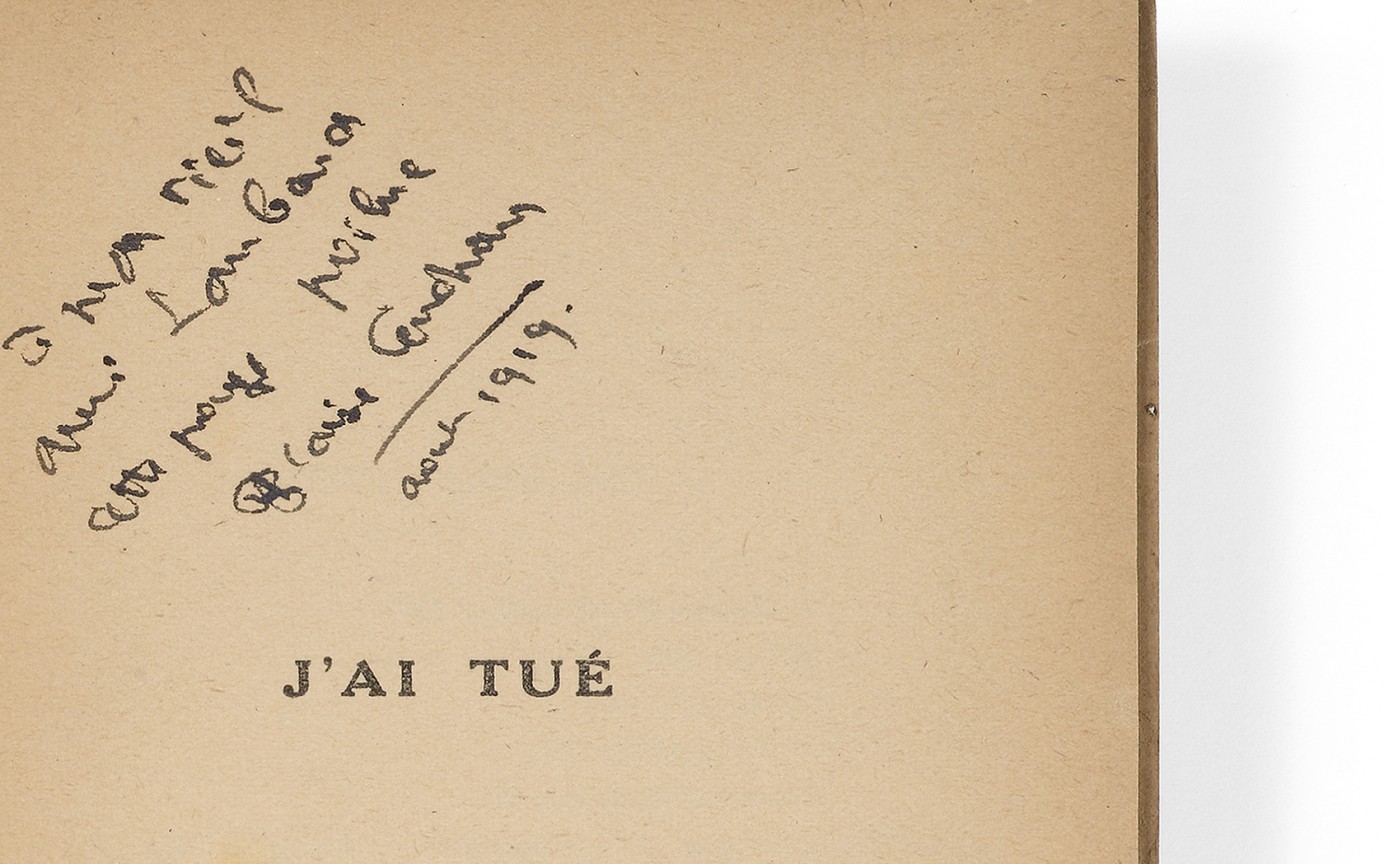 à mon vieil
ami Lambard
cette page
Blaise Cendrars
août 1919.
J'AI TUÉ